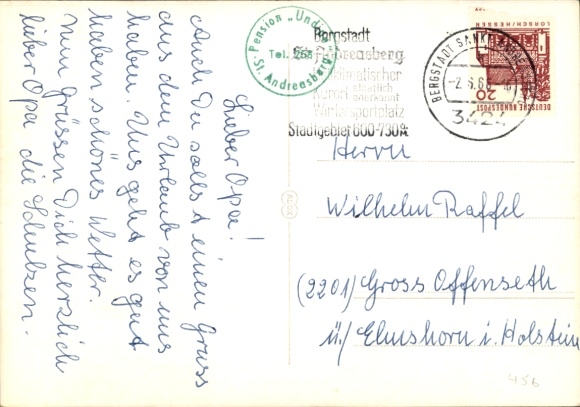 Lieber Opa!
Auch Du sollst einen Gruss
aus dem Urlaub von uns
haben. Uns geht es gut
haben schönes Wetter.
Nun grüssen Dich herzlich
lieber Opa die Schulzen.
Pension „Undine"
Tel. 263
St. Andreasberg
Bergstadt
St. Andreasberg
heilklimatischer
Kurort staatlich
anerkannt
Wintersportplatz
Stadtgebiet 600-730 m
BERGSTADT SANKT ANDREASBERG
-2.6.66
3424
LORSCH/HESSEN
20
DEUTSCHE BUNDESPOST
Herrn
Wilhelm Raffel
(2201) Gross Offenseth
ü./ Elmshorn i. Holstein
456